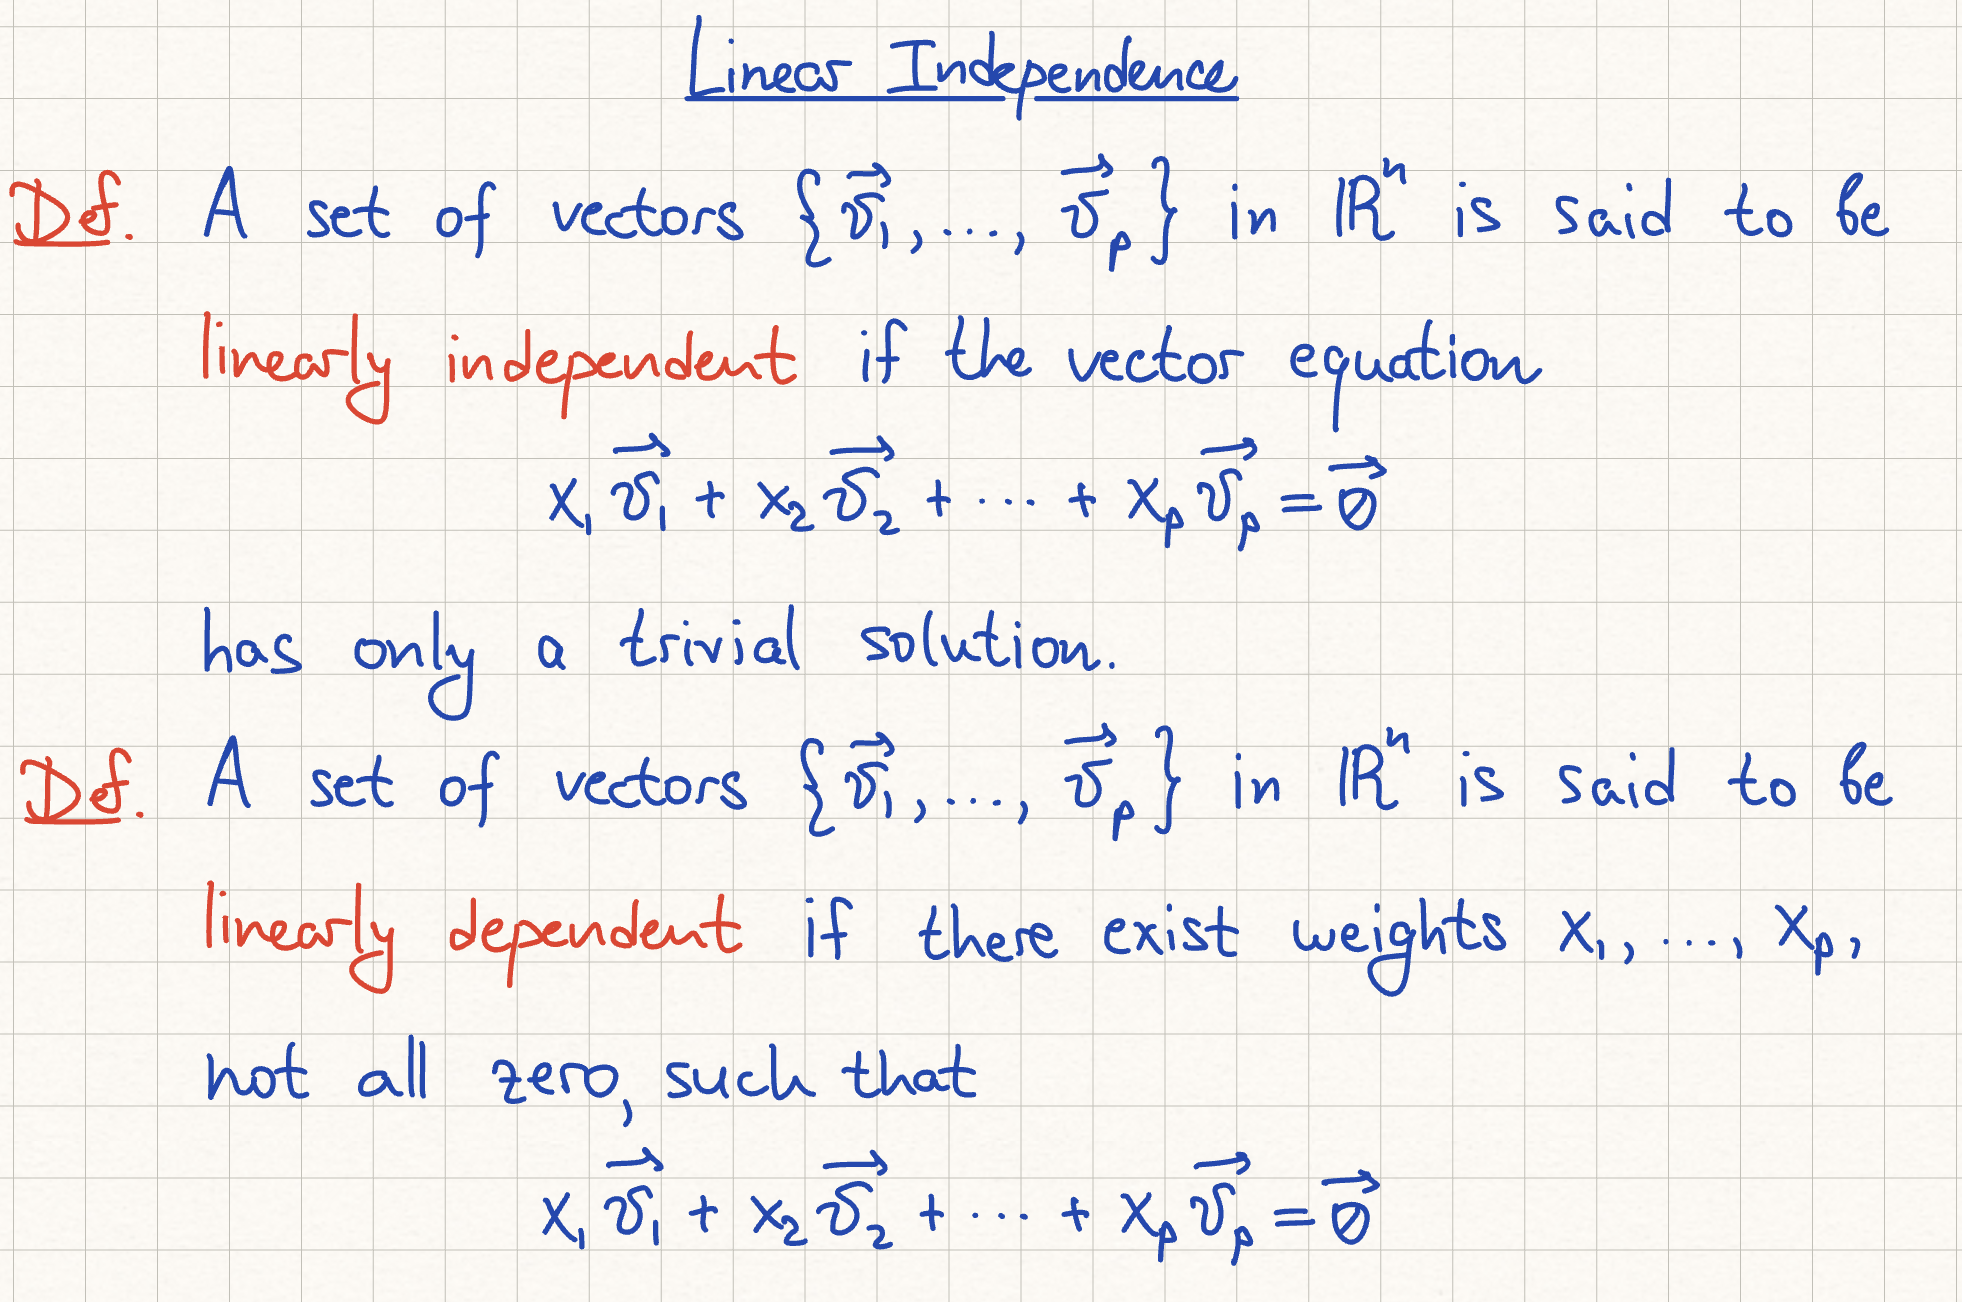 Linear Independence
Def. A set of vectors {v⃗₁, ..., v⃗ₚ} in ℝⁿ is said to be
linearly independent if the vector equation
x₁v⃗₁ + x₂v⃗₂ + ... + xₚv⃗ₚ = 0⃗
has only a trivial solution.
Def. A set of vectors {v⃗₁, ..., v⃗ₚ} in ℝⁿ is said to be
linearly dependent if there exist weights x₁, ..., xₚ,
not all zero, such that
x₁v⃗₁ + x₂v⃗₂ + ... + xₚv⃗ₚ = 0⃗